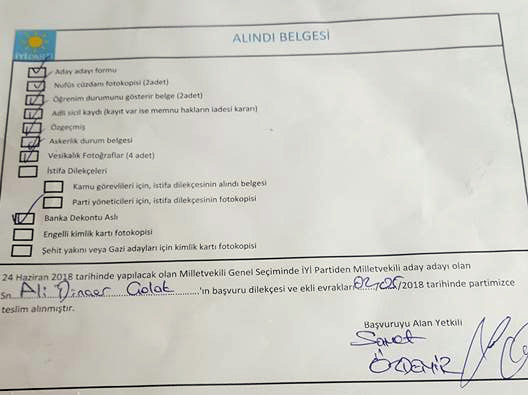 İYİ PARTİ
ALINDI BELGESİ
Aday adayı formu
Nufüs cüzdanı fotokopisi (2adet)
Öğrenim durumunu gösterir belge (2adet)
Adli sicil kaydı (kayıt var ise memnu hakların iadesi kararı)
Özgeçmiş
Askerlik durum belgesi
Vesikalık Fotoğraflar (4 adet)
İstifa Dilekçeleri
Kamu görevlileri için, istifa dilekçesinin alındı belgesi
Parti yöneticileri için, istifa dilekçesinin fotokopisi
Banka Dekontu Aslı
Engelli kimlik kartı fotokopisi
Şehit yakını veya Gazi adayları için kimlik kartı fotokopisi
24 Haziran 2018 tarihinde yapılacak olan Milletvekili Genel Seçiminde İYİ Partiden Milletvekili aday adayı olan
Sn. Ali Dinçer Çolak ...............'ın başvuru dilekçesi ve ekli evrakları 02/05/2018 tarihinde partimizce
teslim alınmıştır.
Başvuruyu Alan Yetkili
Samet
ÖZDEMİR